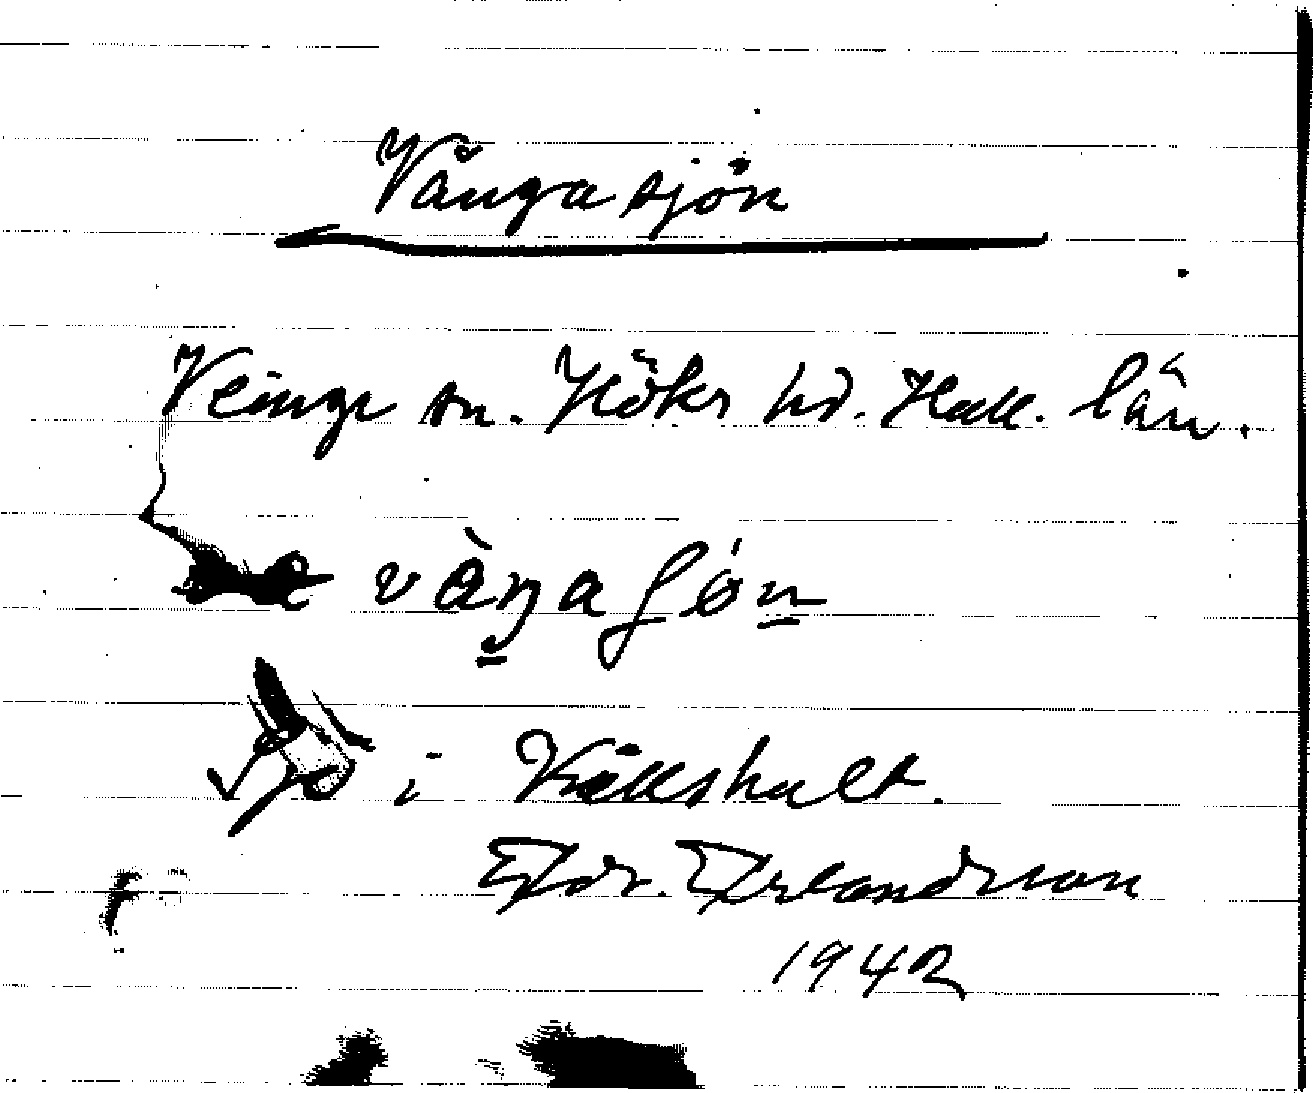 Vångasjön
Veinge sn. Höks hd. Hall. län.
vàŋaʃön
Sjö i Källshult.
Edv. Erlandsson
1942